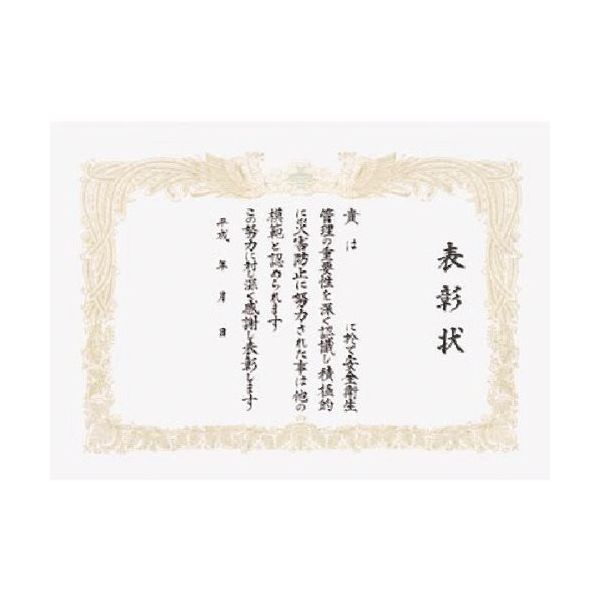 表彰状
貴　は　　　に於て安全衛生
管理の重要性を深く認識し積極的
に災害防止に努力された事は他の
模範と認められます
この努力に対し深く感謝し表彰します
平成　年　月　日